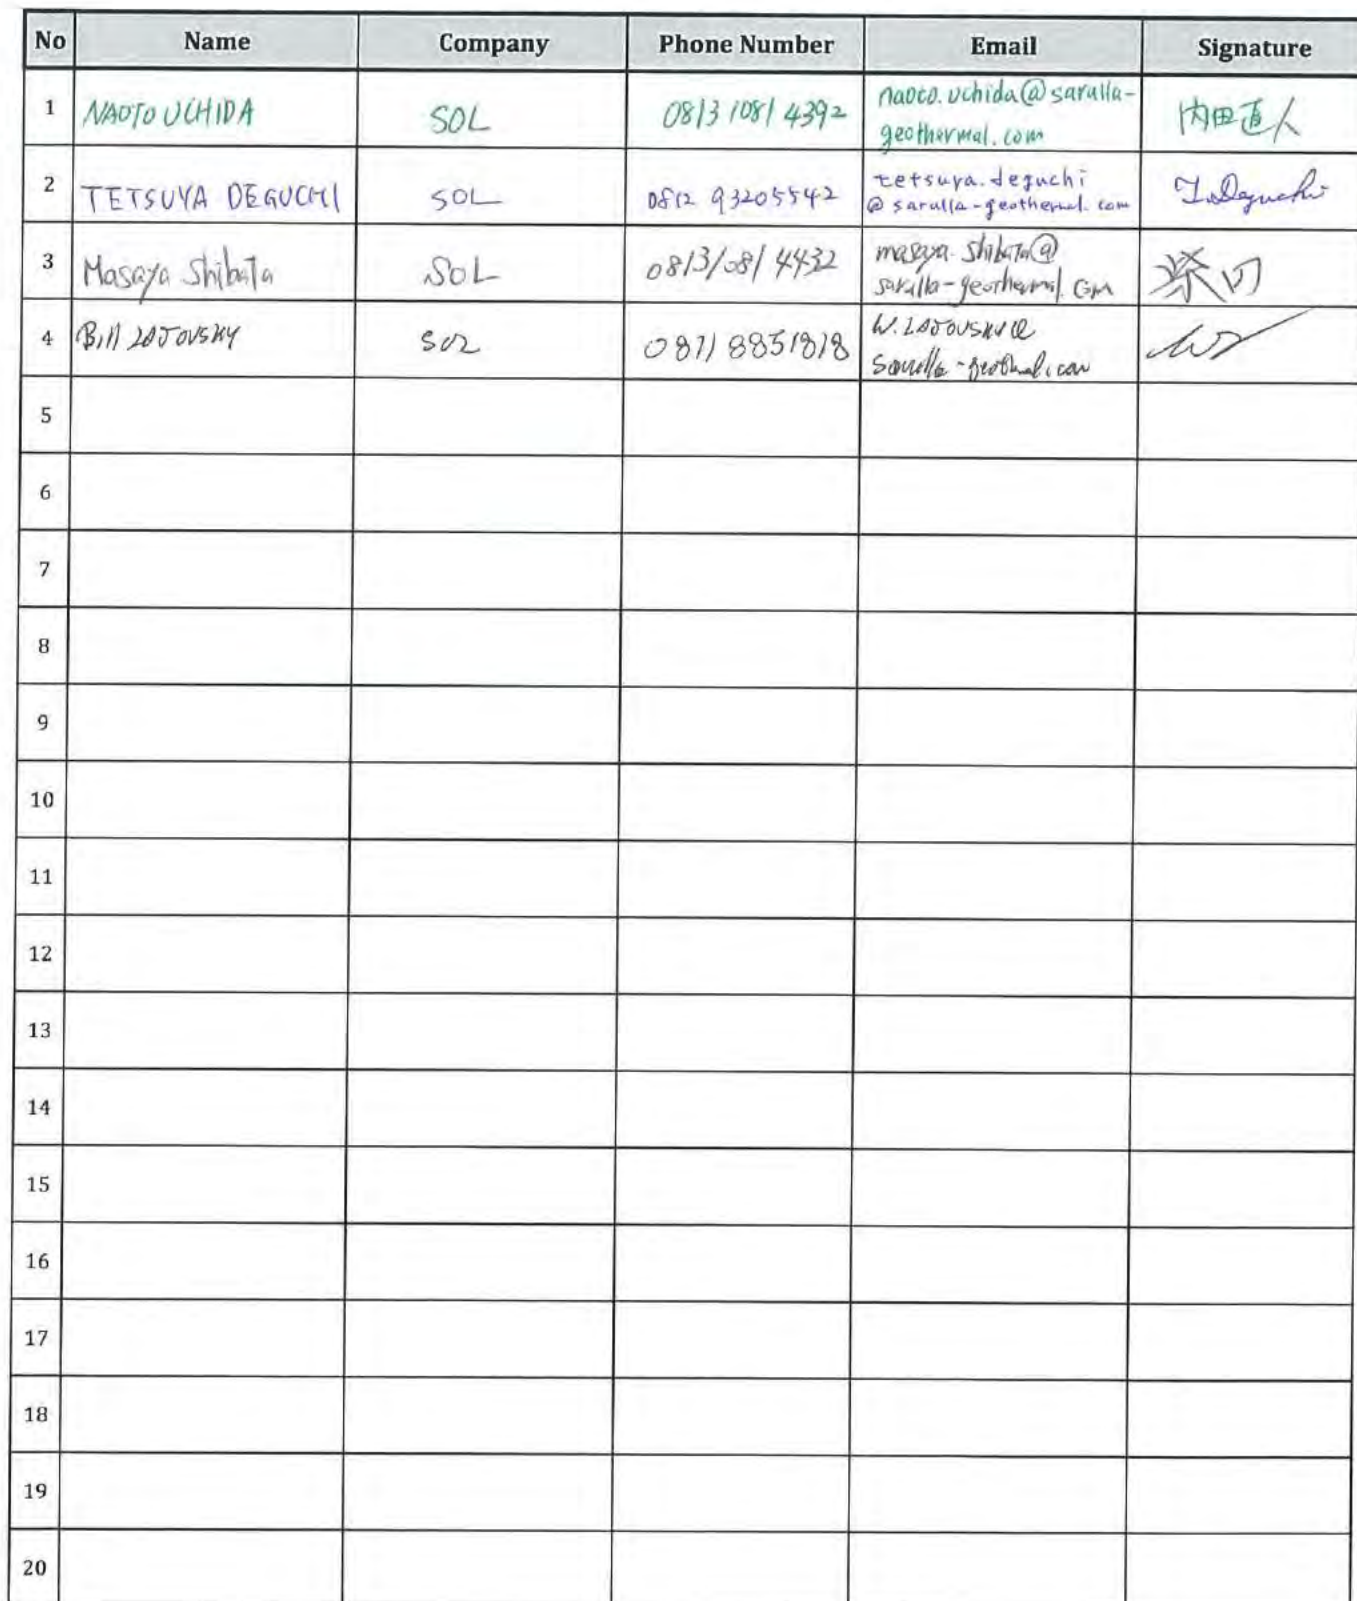 No Name Company Phone Number Email Signature
1 NAOTO UCHIDA SOL 0813 1081 4392 naoto.uchida@sarulla-
geothermal.com 内田直人
2 TETSUYA DEGUCHI SOL 0812 93205542 tetsuya.deguchi
@sarulla-geothermal.com T.Deguchi
3 Masaya Shibata SOL 0813/081 4432 masaya.shibata@
sarulla-geothermal.com 柴田
4 Bill SOL 0811 8851818
5
6
7
8
9
10
11
12
13
14
15
16
17
18
19
20